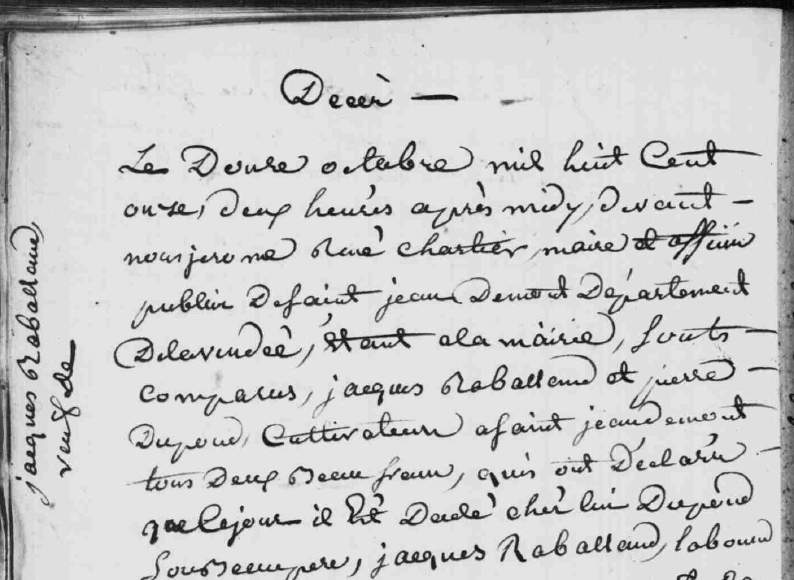 Decer —
Le Douze octobre mil huit Cent
onze, deux heures après midy, devant -
nous jerome René chartier, maire et officier
publiu De saint jean Demont Département
Delavendeè, étant ala mairie, sonts -
comparus, jacques Raballand et pierre -
Dupond, Cultivateurs a saint jeandemont
tous Deux Beau freres, quis ont Déclarés
que lejour il Est Décédé chér lui Dupond
son Beaupere, jacques Raballand, laboureur
jacques Raballaud
veuf de